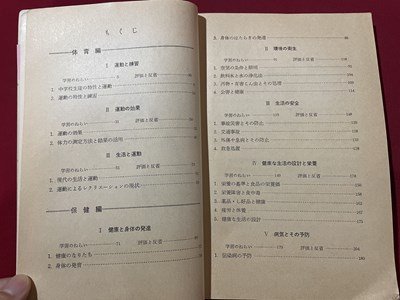 もくじ
体育編
I 運動と練習
学習のねらい 評価と反省
1. 中学校生活の特性と運動
2. 運動の特性と練習
II 運動の効果
学習のねらい 31 評価と反省
1. 運動の効果
2. 体力の測定方法と結果の活用
III 生活と運動
学習のねらい 評価と反省
1. 現代の生活と運動
2. 運動によるレクリエーションの現状
保健編
I 健康と身体の発達
学習のねらい 71 評価と反省
1. 健康のなりたち
2. 身体の発育
3. 身体のはたらきの発達 86
II 環境の衛生
学習のねらい 91 評価と反省
1. 空気の条件と照明
2. 飲料水と水の浄化法
3. 汚物・有害こん虫とその処理
4. 公害と健康 114
III 生活の安全
学習のねらい 評価と反省
1. 事故災害とその防止
2. 交通事故
3. 外傷や急病とその防止
4. 救急処置
IV 健康な生活の設計と栄養
学習のねらい 評価と反省
1. 栄養の基準と食品の栄養価
2. 栄養障害と食中毒
3. 薬品・し好品と健康
4. 疲労と休養
5. 健康な生活の設計
V 病気とその予防
学習のねらい 179 評価と反省
1. 伝染病の予防 180